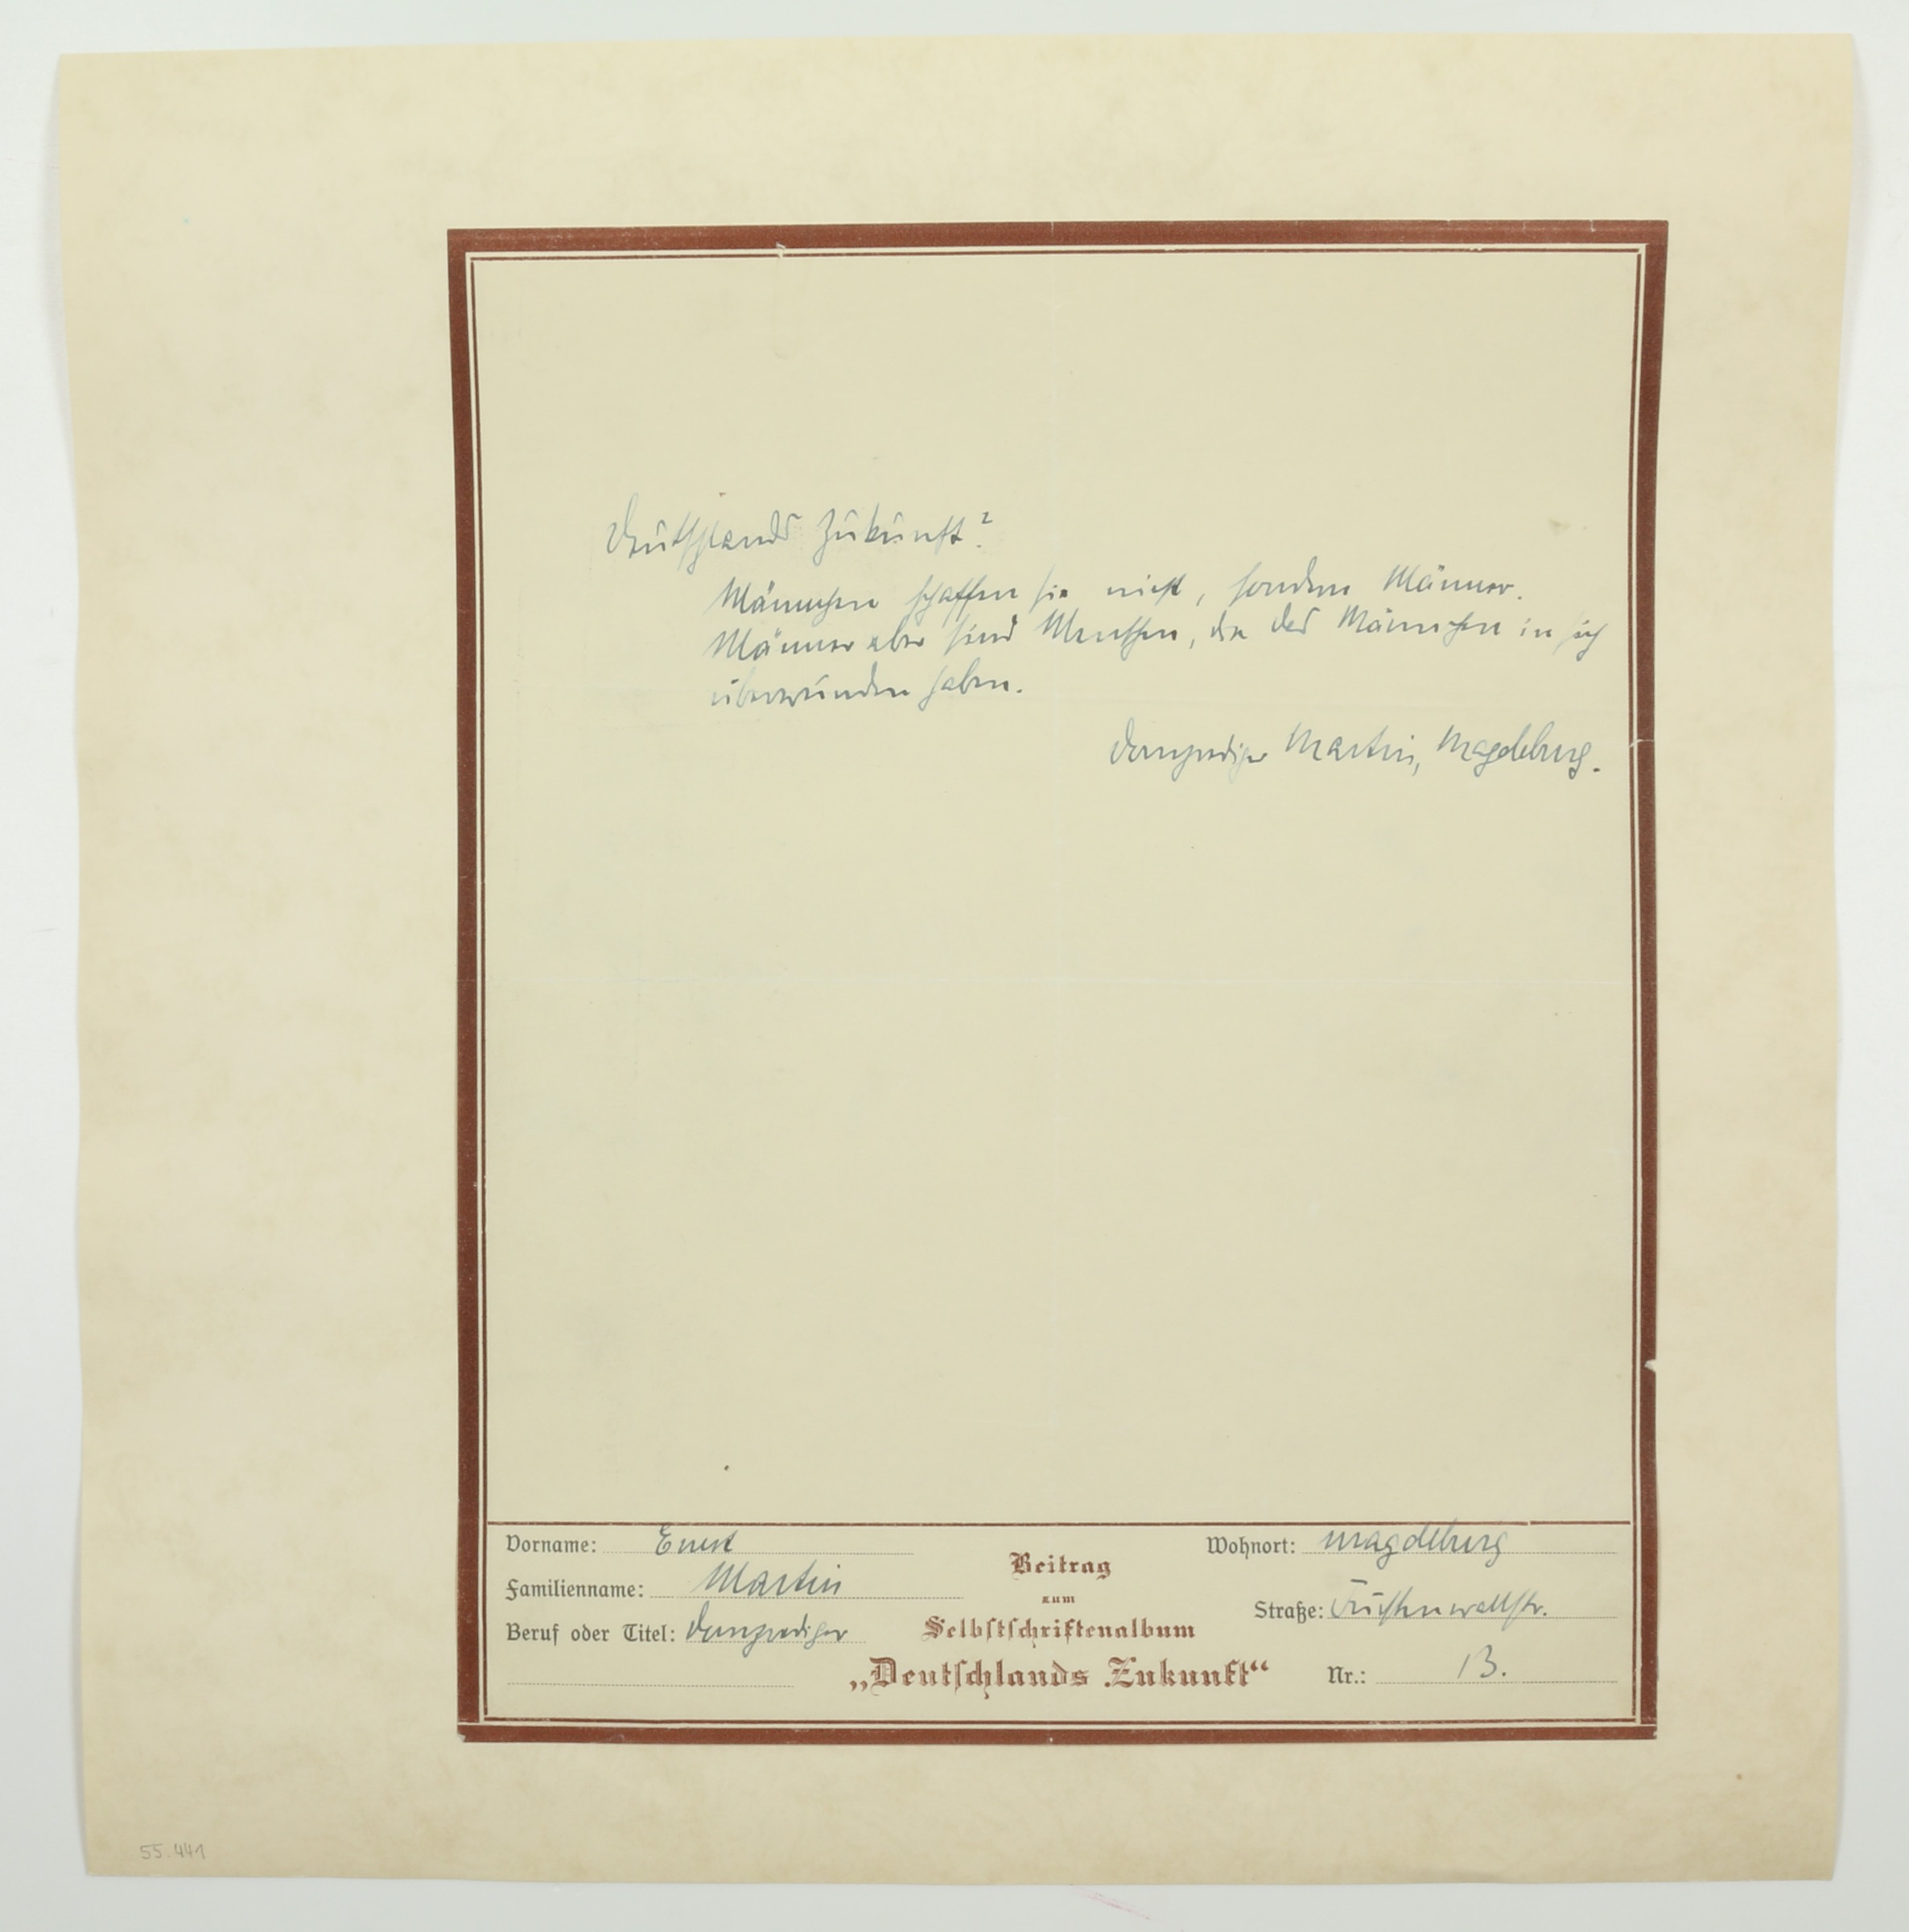 Deutschlands Zukunft?
Männchen schaffen sie nicht, sondern Männer.
Männer aber sind Menschen, die das Männchen in sich
überwunden haben.
Domprediger Martin, Magdeburg.
Vorname: Ernst
Familienname: Martin
Beruf oder Titel: Domprediger
Beitrag
zum
Selbstschriftenalbum
„Deutschlands Zukunft“
Wohnort: Magdeburg
Straße: Fürstenwallstr.
Nr.: 13.
55.441